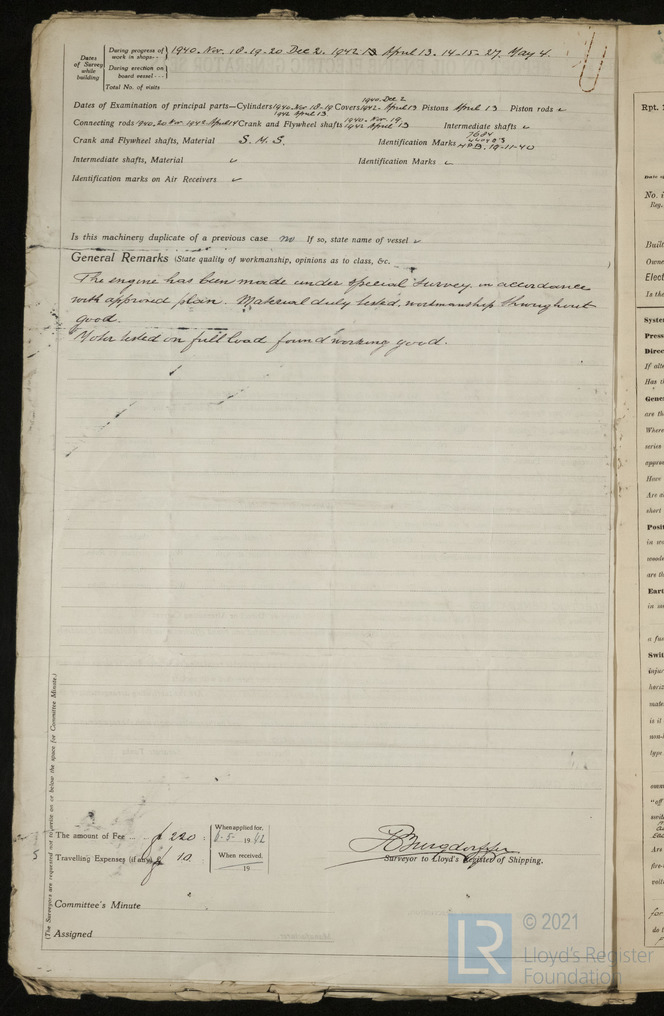 Dates of Survey while building
During progress of work in shops -- 1940. Nov. 18-19-20. Dec 2. 1942. April 13. 14-15-27. May 4.
During erection on board vessel ---
Total No. of visits
Dates of Examination of principal parts—Cylinders 1940 Nov 18-19 1942 April 13. Covers 1940. Dec 2 1942. April 13 Pistons April 13 Piston rods
Connecting rods 1940. 20 Nov 1942 April 14 Crank and Flywheel shafts 1940. Nov. 19. 1942 April 13 Intermediate shafts
Crank and Flywheel shafts, Material S. M. S. Identification Marks 19-11-40
Intermediate shafts, Material Identification Marks
Identification marks on Air Receivers
Is this machinery duplicate of a previous case no If so, state name of vessel
General Remarks (State quality of workmanship, opinions as to class, &c.
The engine has been made under special survey in accordance
with approved plan. Material duly tested, workmanship throughout
good.
Motor tested on full load found working good.
(The Surveyors are requested not to write on or below the space for Committee Minute.)
The amount of Fee ... 220 : When applied for, 6.5. 1942
Travelling Expenses (if any) 10 When received, 19
Surveyor to Lloyd's Register of Shipping.
Committee's Minute
Assigned
Rpt.
LR © 2021
Lloyd's Register
Foundation